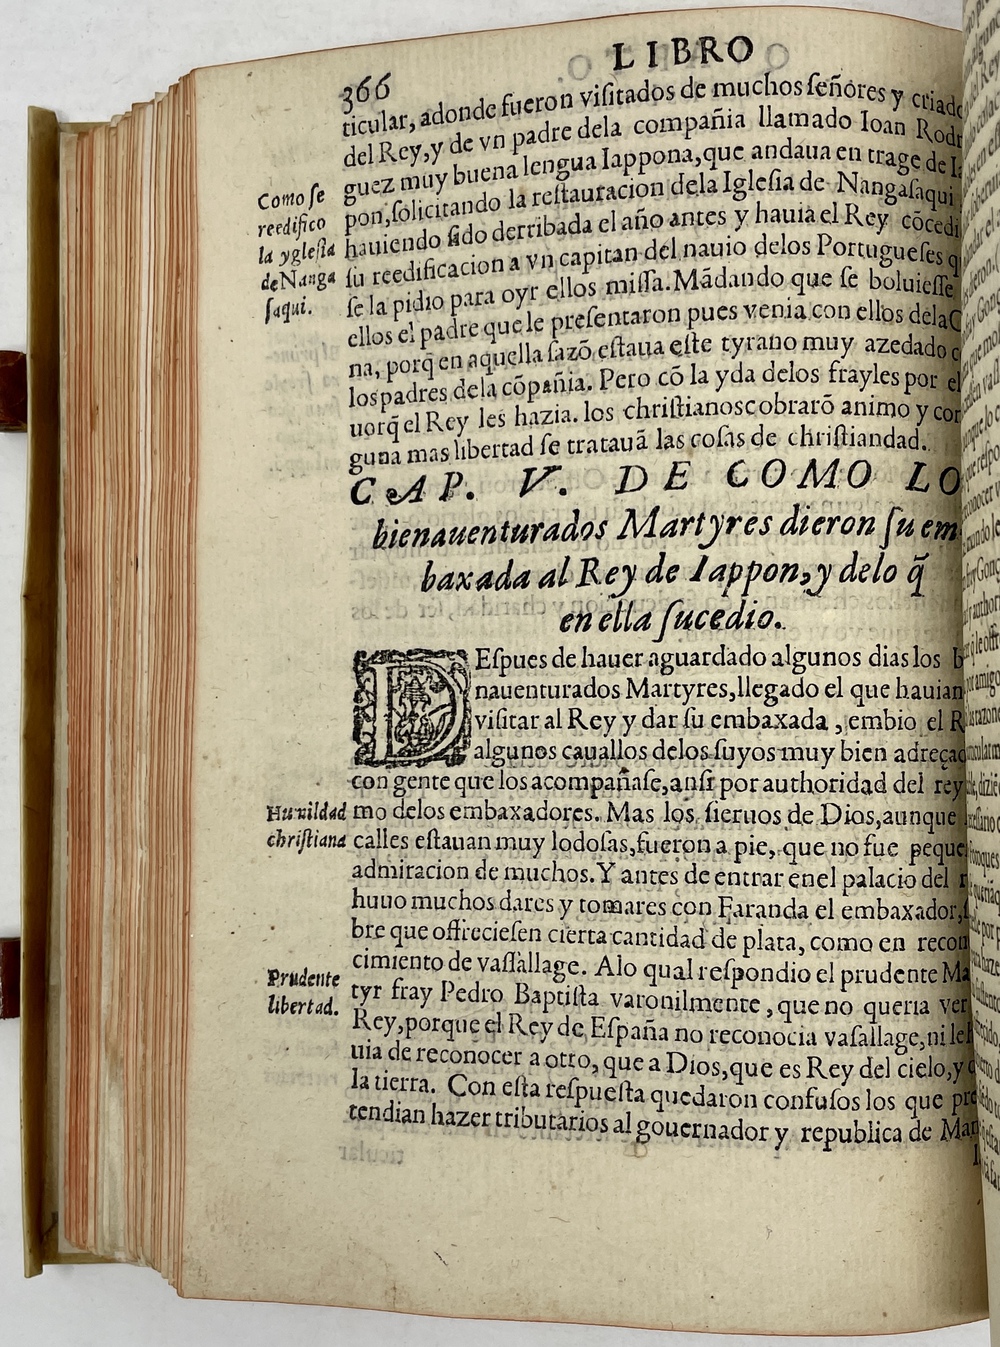 366
LIBRO
ticular, adonde fueron viſitados de muchos ſeñores y criado
del Rey,y de vn padre dela compañia llamado Ioan Rodr
guez muy buena lengua Iappona,que andaua en trage de Ia
pon,ſolicitando la reſtauracion dela Igleſia de Nangaſaqui
hauiendo ſido derribada el año antes y hauia el Rey cõcedi
ſu reedificacion a vn capitan del nauio delos Portugueſes q
ſe la pidio para oyr ellos miſſa. Mãdando que ſe boluieſſe
ellos el padre que le preſentaron pues venia con ellos dela C
na, porq̃ en aquella ſazõ eſtaua eſte tyrano muy azedado c
los padres dela cõpañia. Pero cõ la yda delos frayles por el
uorq̃ el Rey les hazia. los chriſtianos cobrarõ animo y con
guna mas libertad ſe tratauã las coſas de chriſtiandad.
Como ſe
reedifico
la ygleſia
de Nanga
ſaqui.
CAP. V. DE COMO LO
bienauenturados Martyres dieron ſu em
baxada al Rey de Iappon, y delo q̃
en ella ſucedio.
DEſpues de hauer aguardado algunos dias los b
nauenturados Martyres,llegado el que hauian
viſitar al Rey y dar ſu embaxada , embio el R
algunos cauallos delos ſuyos muy bien adreçad
con gente que los acompañaſe,anſi por authoridad del rey
mo delos embaxadores. Mas los ſieruos de Dios,aunque
calles eſtauan muy lodoſas,fueron a pie, que no fue peque
admiracion de muchos. Y antes de entrar en el palacio del r
huuo muchos dares y tomares con Faranda el embaxador,ſ
bre que offrecieſen cierta cantidad de plata, como en recon
cimiento de vaſſallage. Alo qual reſpondio el prudente Ma
tyr fray Pedro Baptiſta varonilmente , que no queria ver
Rey,porque el Rey de Eſpaña no reconocia vaſallage,ni le h
uia de reconocer a otro, que a Dios,que es Rey del cielo,y d
la tierra. Con eſta reſpueſta quedaron confuſos los que pre
tendian hazer tributarios al gouernador y republica de Man
Humildad
chriſtiana
Prudente
libertad.